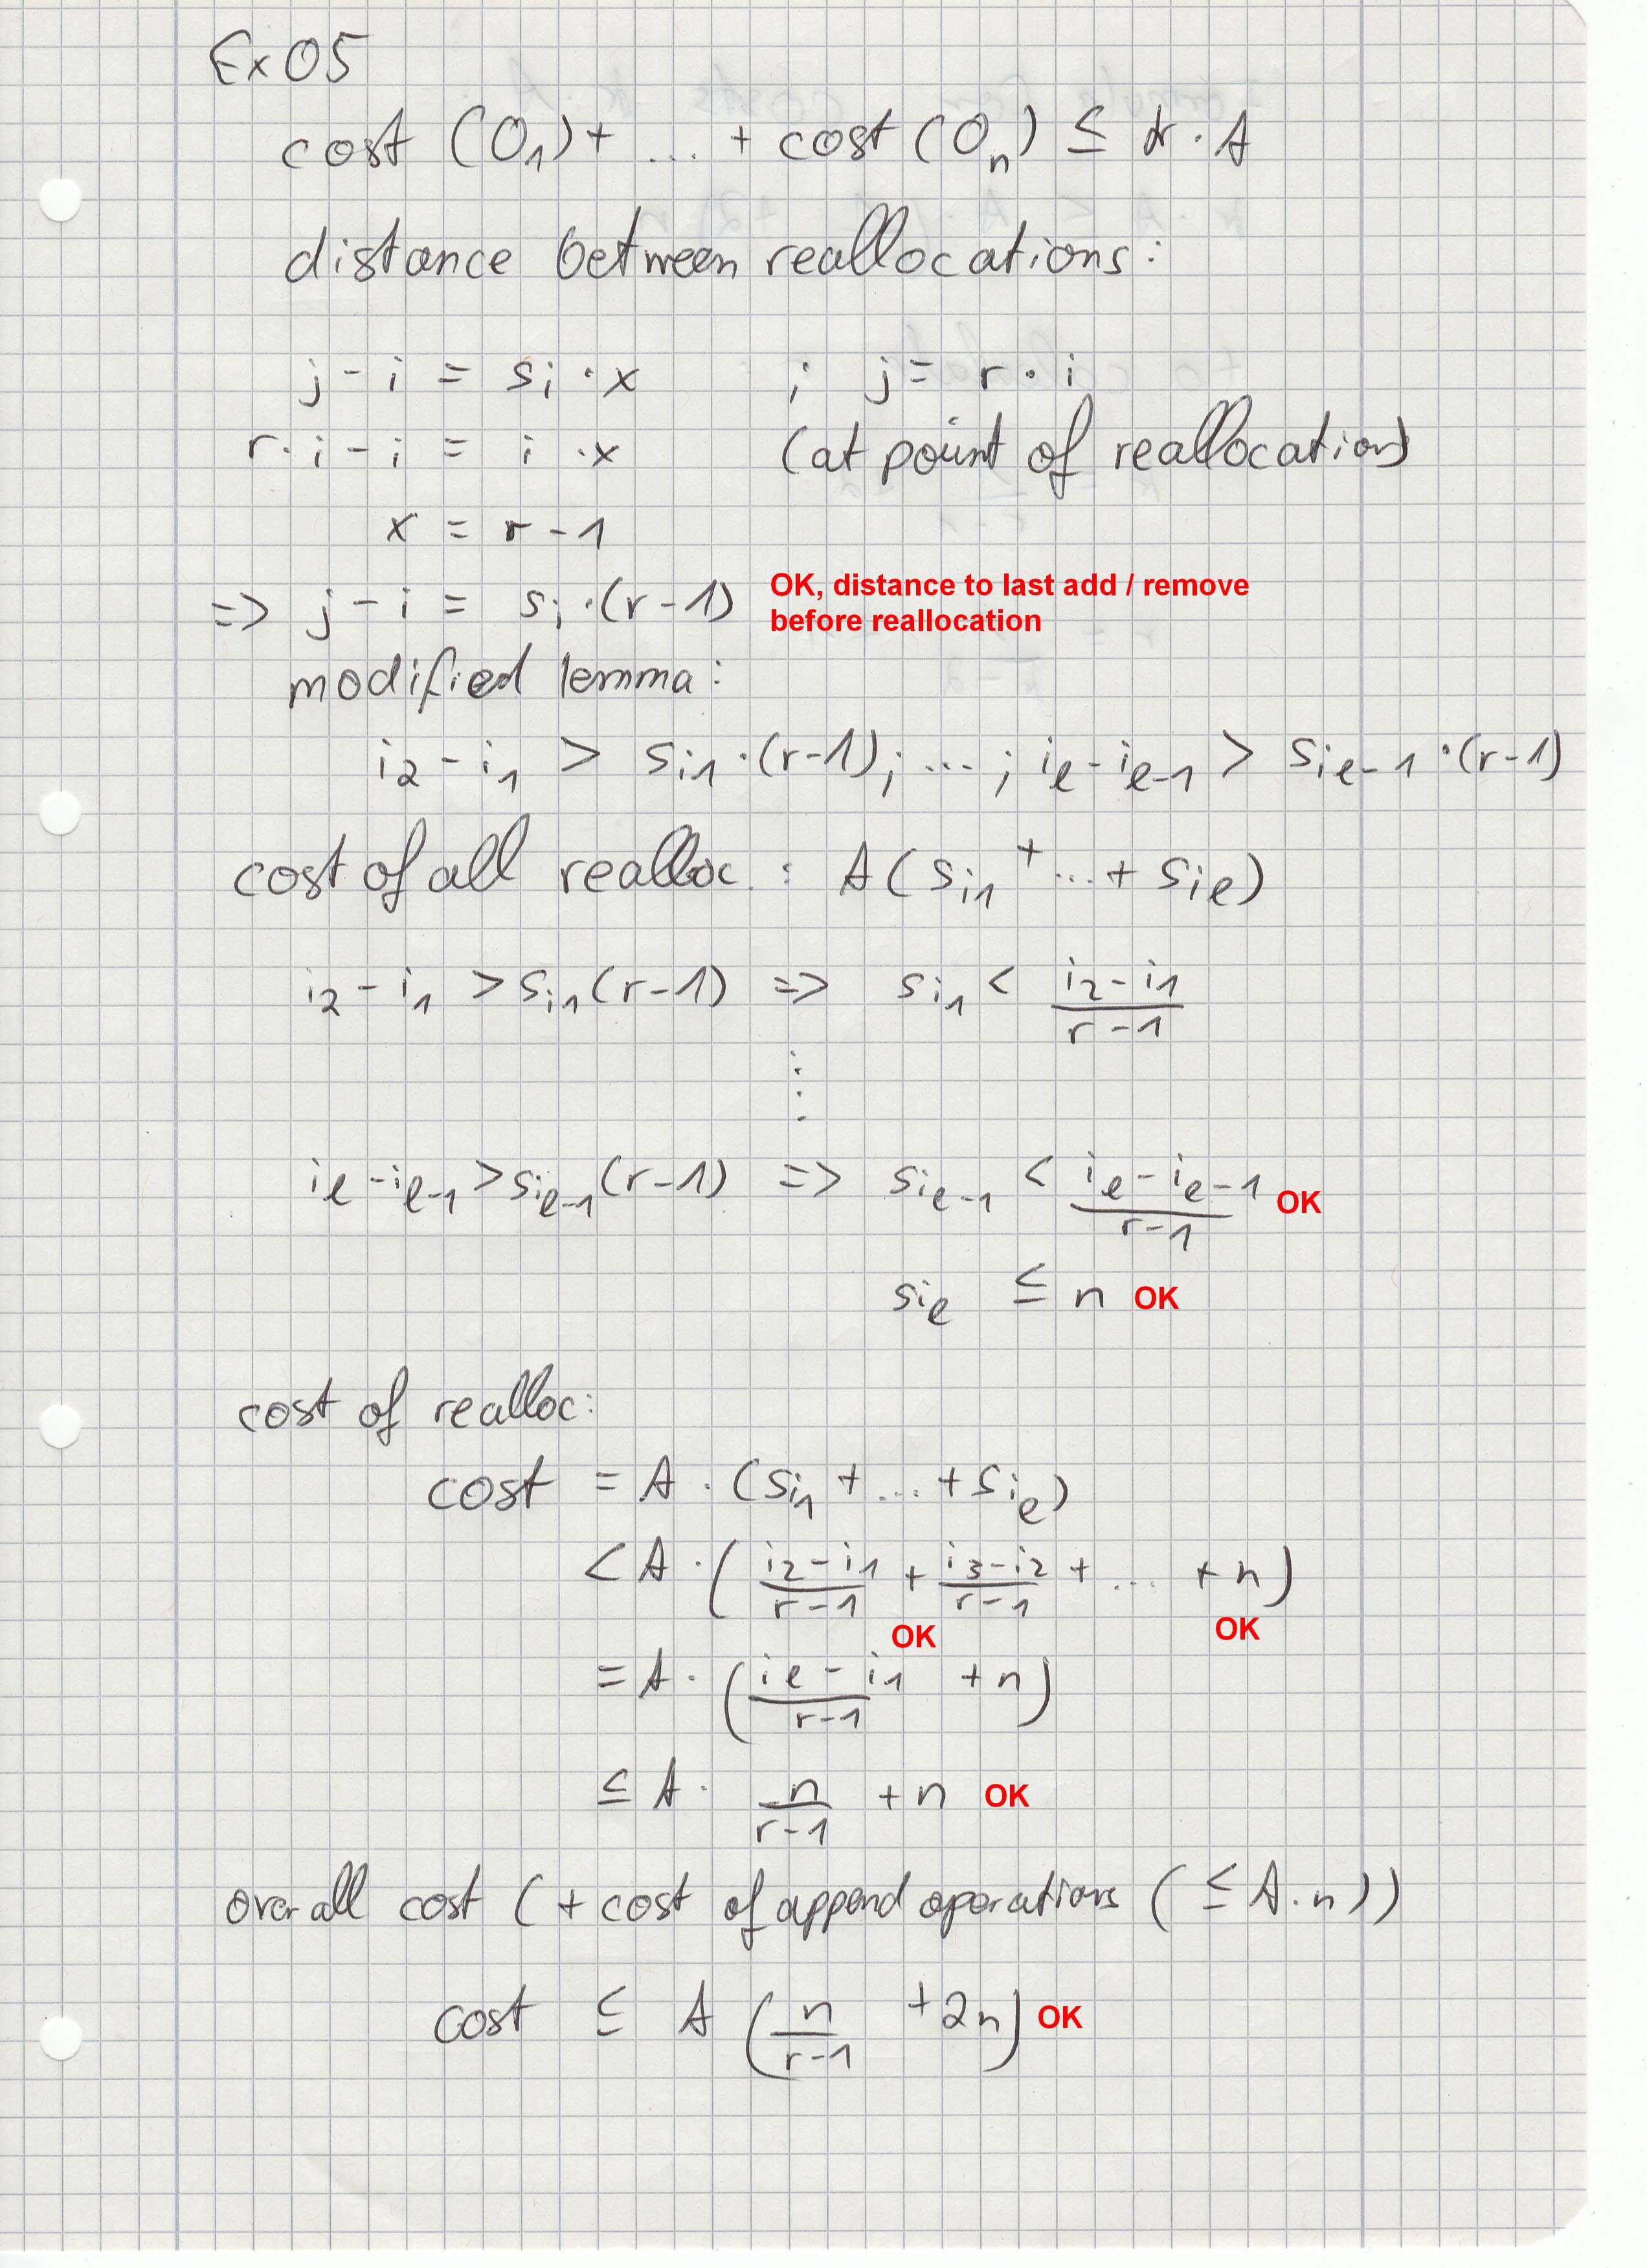 Ex 05
cost (O₁) + ... + cost (Oₙ) ≤ k · A
distance between reallocations:
j - i = sᵢ · x ; j = r · i
r · i - i = i · x (at point of reallocation)
x = r - 1
=> j - i = sᵢ · (r-1) OK, distance to last add / remove
before reallocation
modified lemma:
i₂ - i₁ > s_i₁ · (r-1); ... ; i_e - i_e-1 > s_i_e-1 · (r-1)
cost of all realloc. : A (s_i₁ + ... + s_i_e)
i₂ - i₁ > s_i₁ (r-1) => s_i₁ < (i₂ - i₁)/(r-1)
⋮
i_e - i_e-1 > s_i_e-1 (r-1) => s_i_e-1 < (i_e - i_e-1)/(r-1) OK
s_i_e ≤ n OK
cost of realloc:
cost = A · (s_i₁ + ... + s_i_e)
< A · ((i₂ - i₁)/(r-1) + (i₃ - i₂)/(r-1) + ... + n)
OK OK
= A · ((i_e - i₁)/(r-1) + n)
≤ A · n/(r-1) + n OK
overall cost (+ cost of append operations (≤ A·n))
cost ≤ A (n/(r-1) + 2n) OK